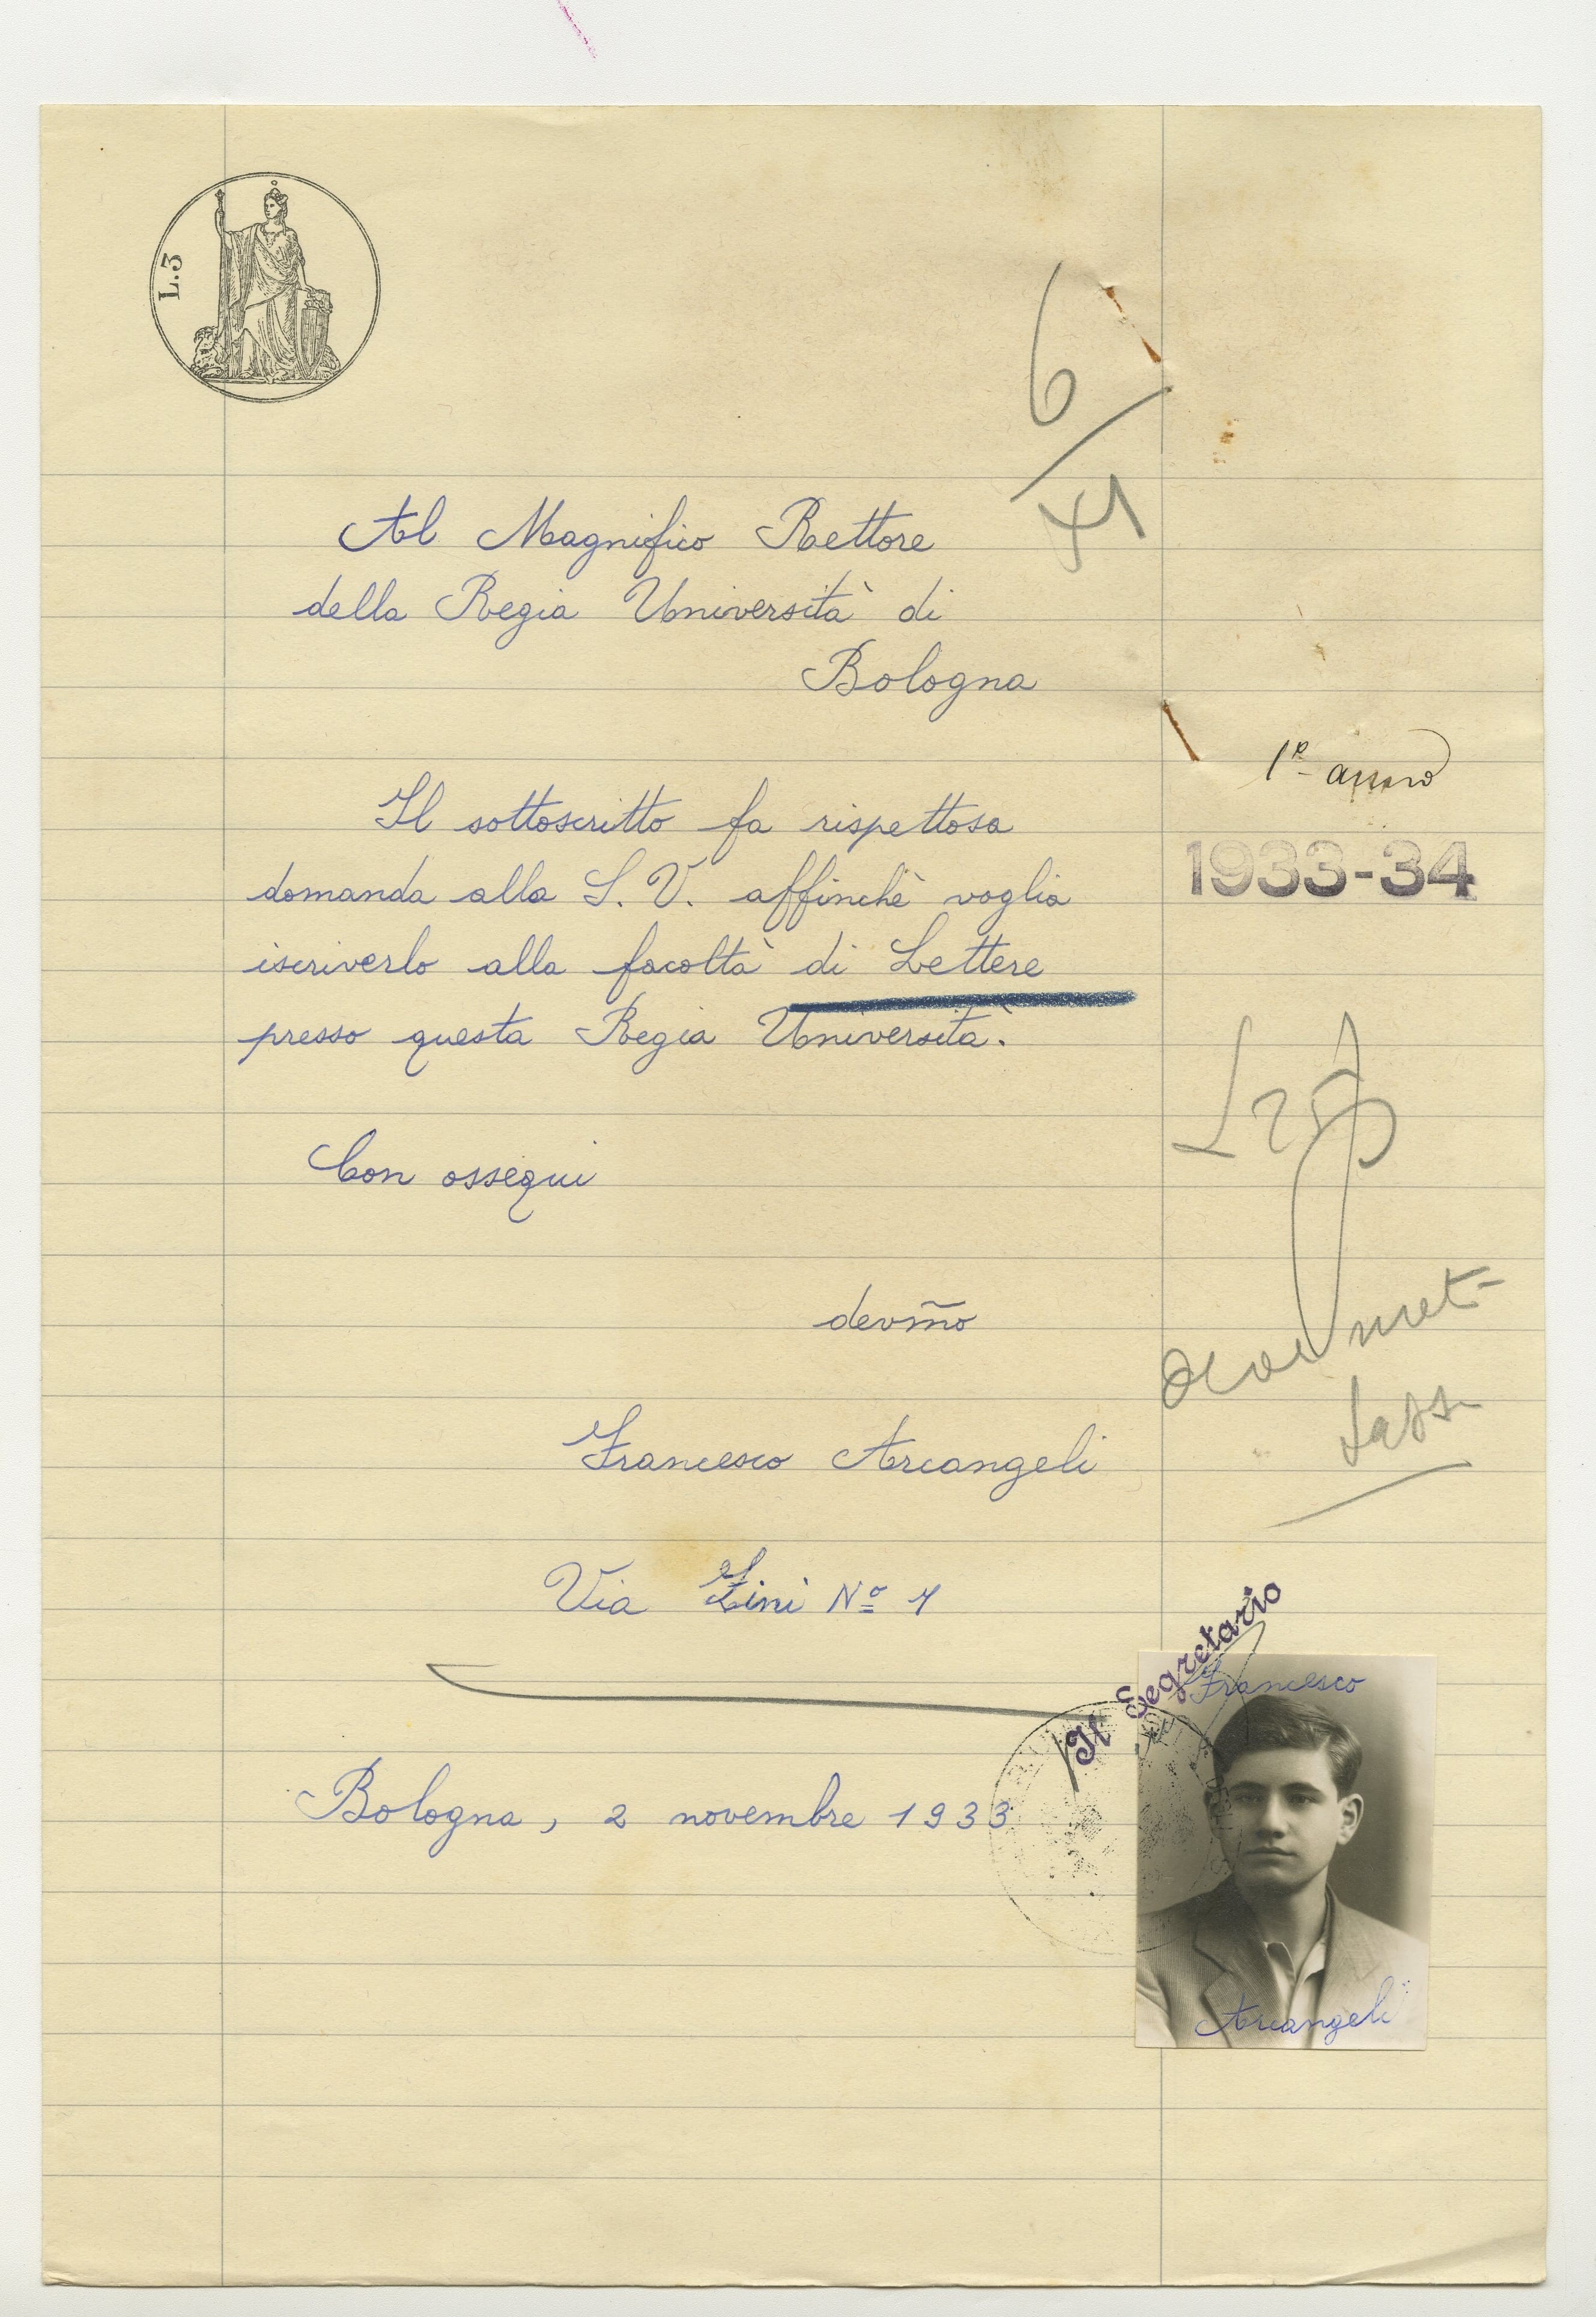 L.3
6
XI
Al Magnifico Rettore
della Regia Università di
Bologna
1º anno
Il sottoscritto fa rispettosa
domanda alla S. V. affinchè voglia
1933-34
iscriverlo alla facoltà di Lettere
presso questa Regia Università.
Con ossequi
devm̃o
Francesco Arcangeli
Via Zini Nº 7
Il Segretario
Francesco
Bologna, 2 novembre 1933
Arcangeli